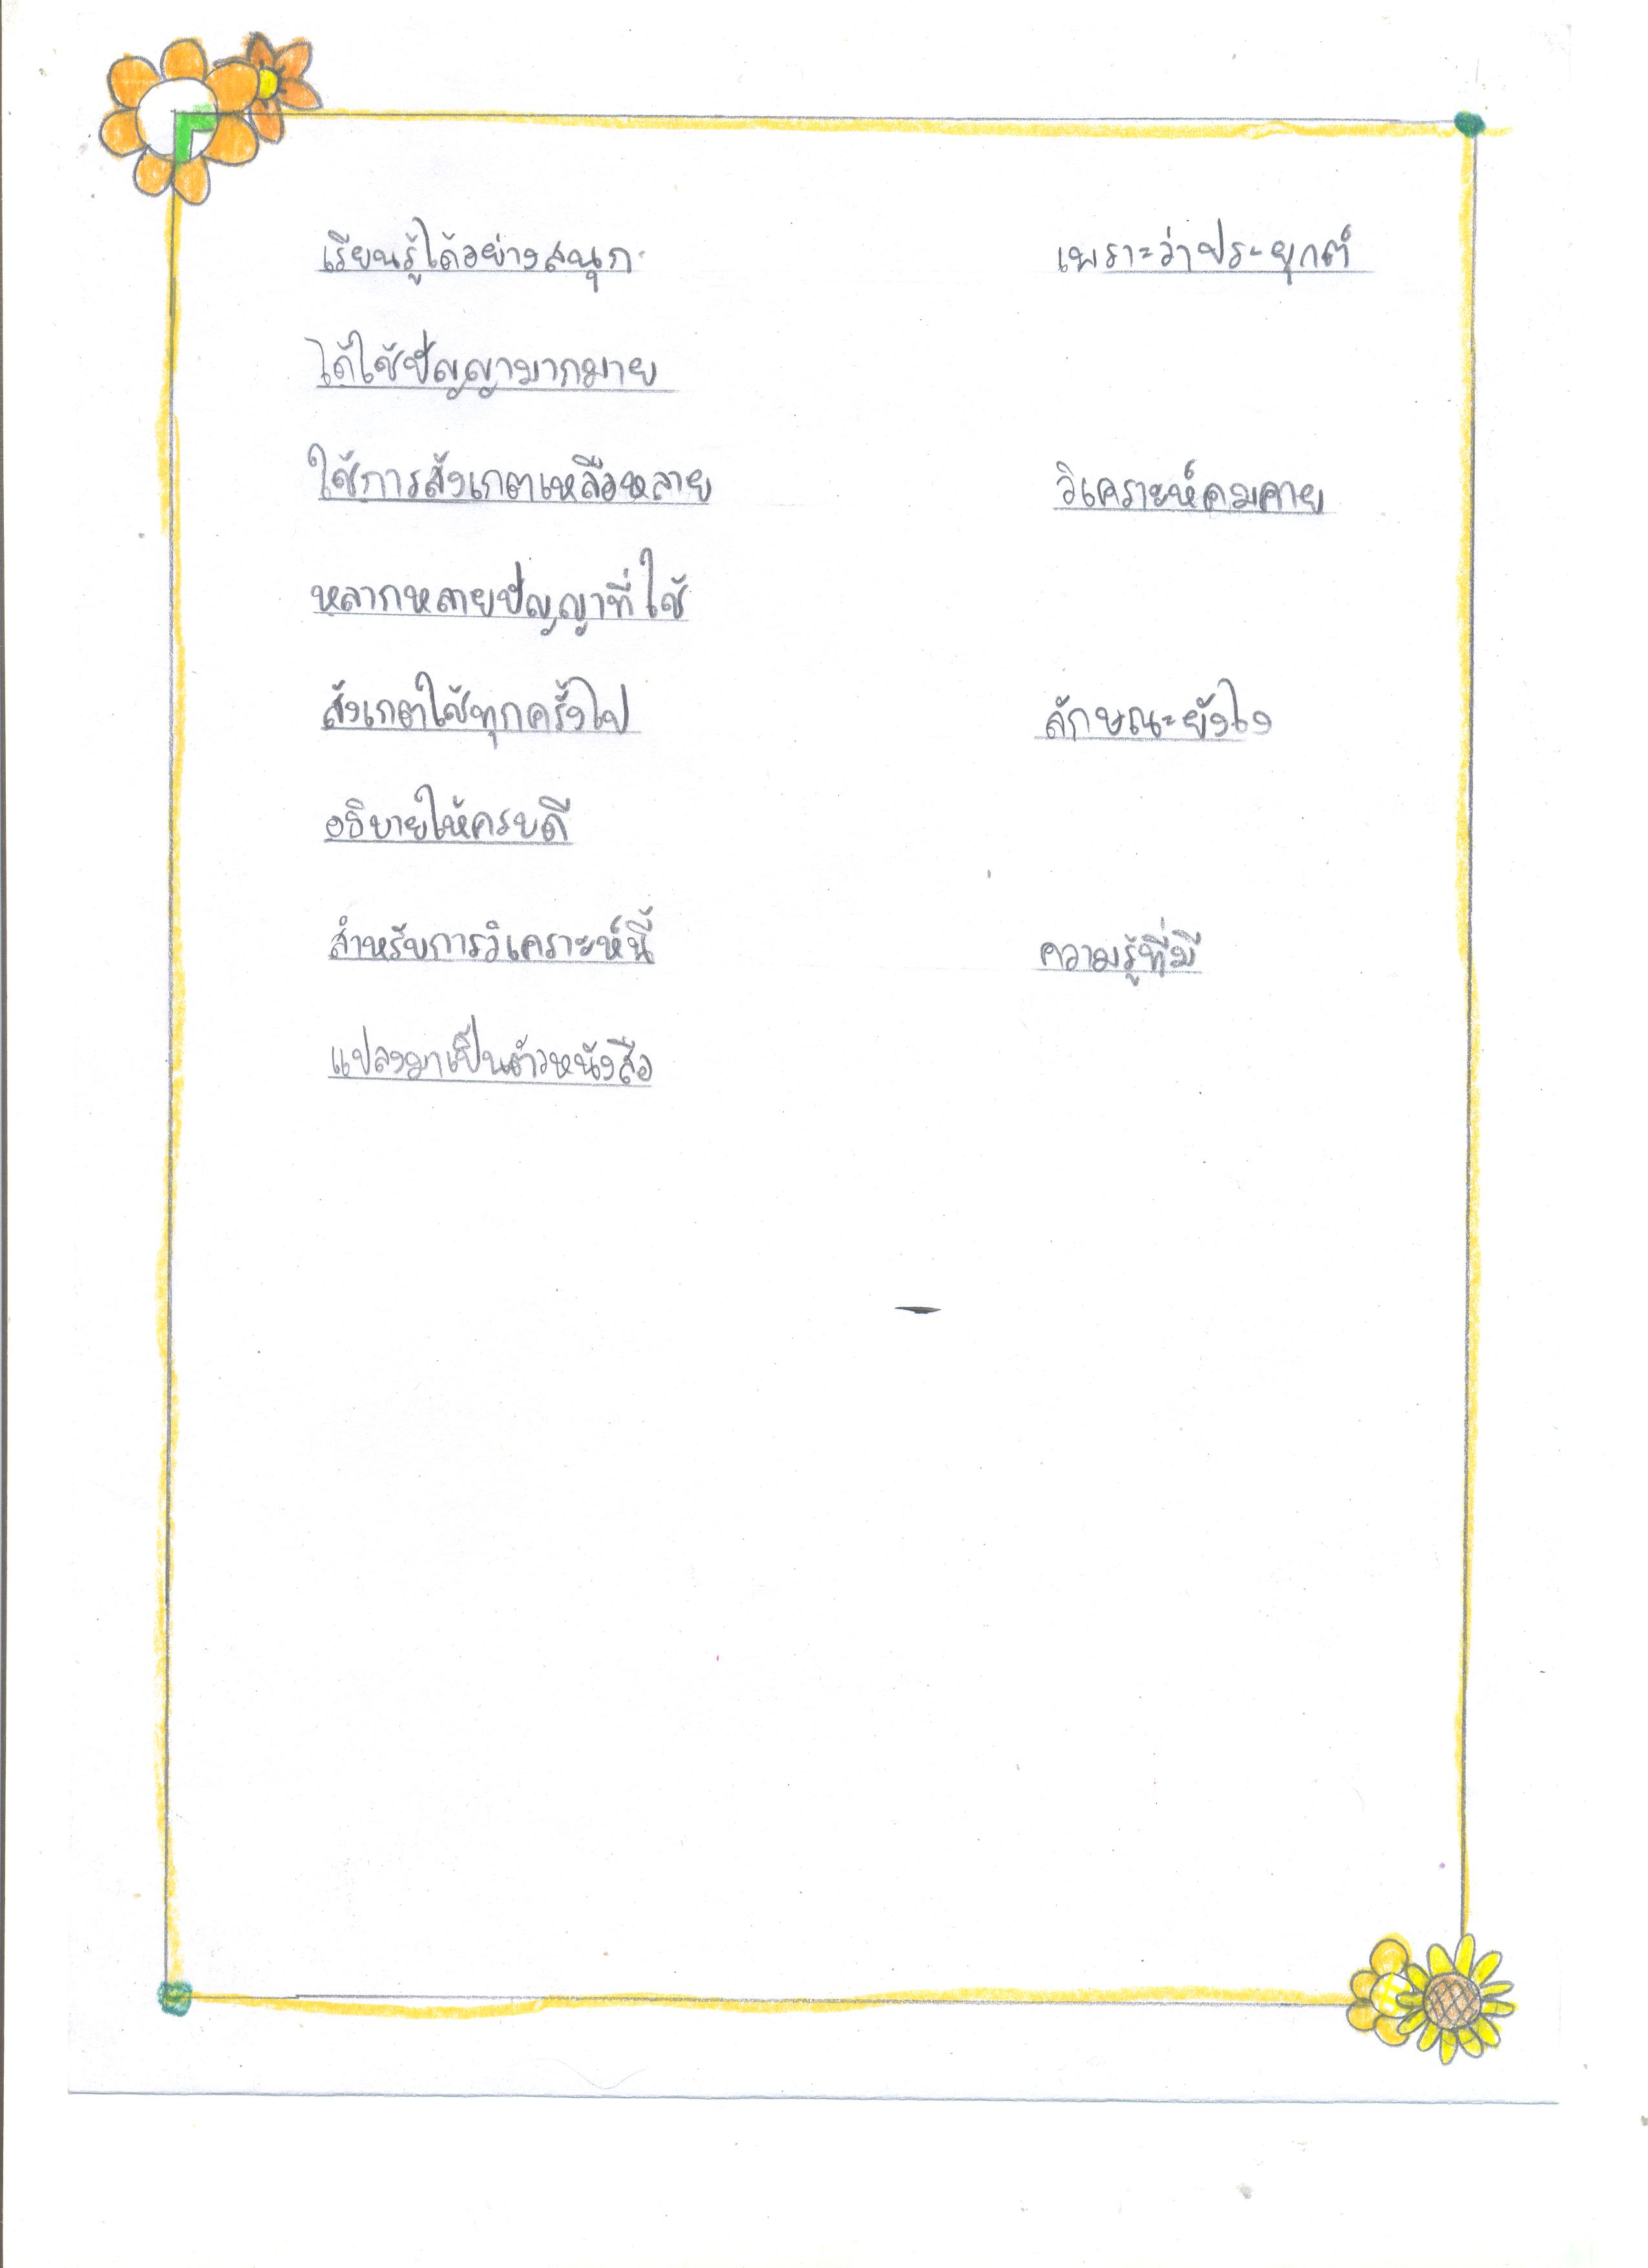 เรียนรู้ได้อย่างสนุก เพราะว่าประยุกต์
ได้ใช้ปัญญามากมาย
ใช้การสังเกตเหลือหลาย วิเคราะห์คมคาย
หลากหลายปัญญาที่ใช้
สังเกตใช้ทุกครั้งไป ลักษณะยังไง
อธิบายให้ครบดี
สำหรับการวิเคราะห์นี้ ความรู้ที่มี
แปลงมาเป็นตัวหนังสือ